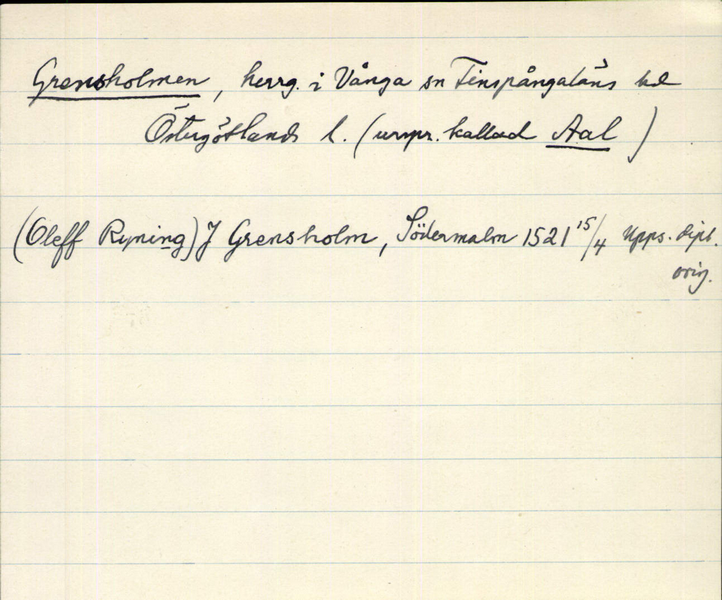 Grensholmen, herrg. i Vånga sn Finspångaläns hd
Östergötlands l. (urspr. kallad Aal)
(Oleff Ryning) J Grensholm, Södermalm 1521 15/4 Upps. dipl.
orig.